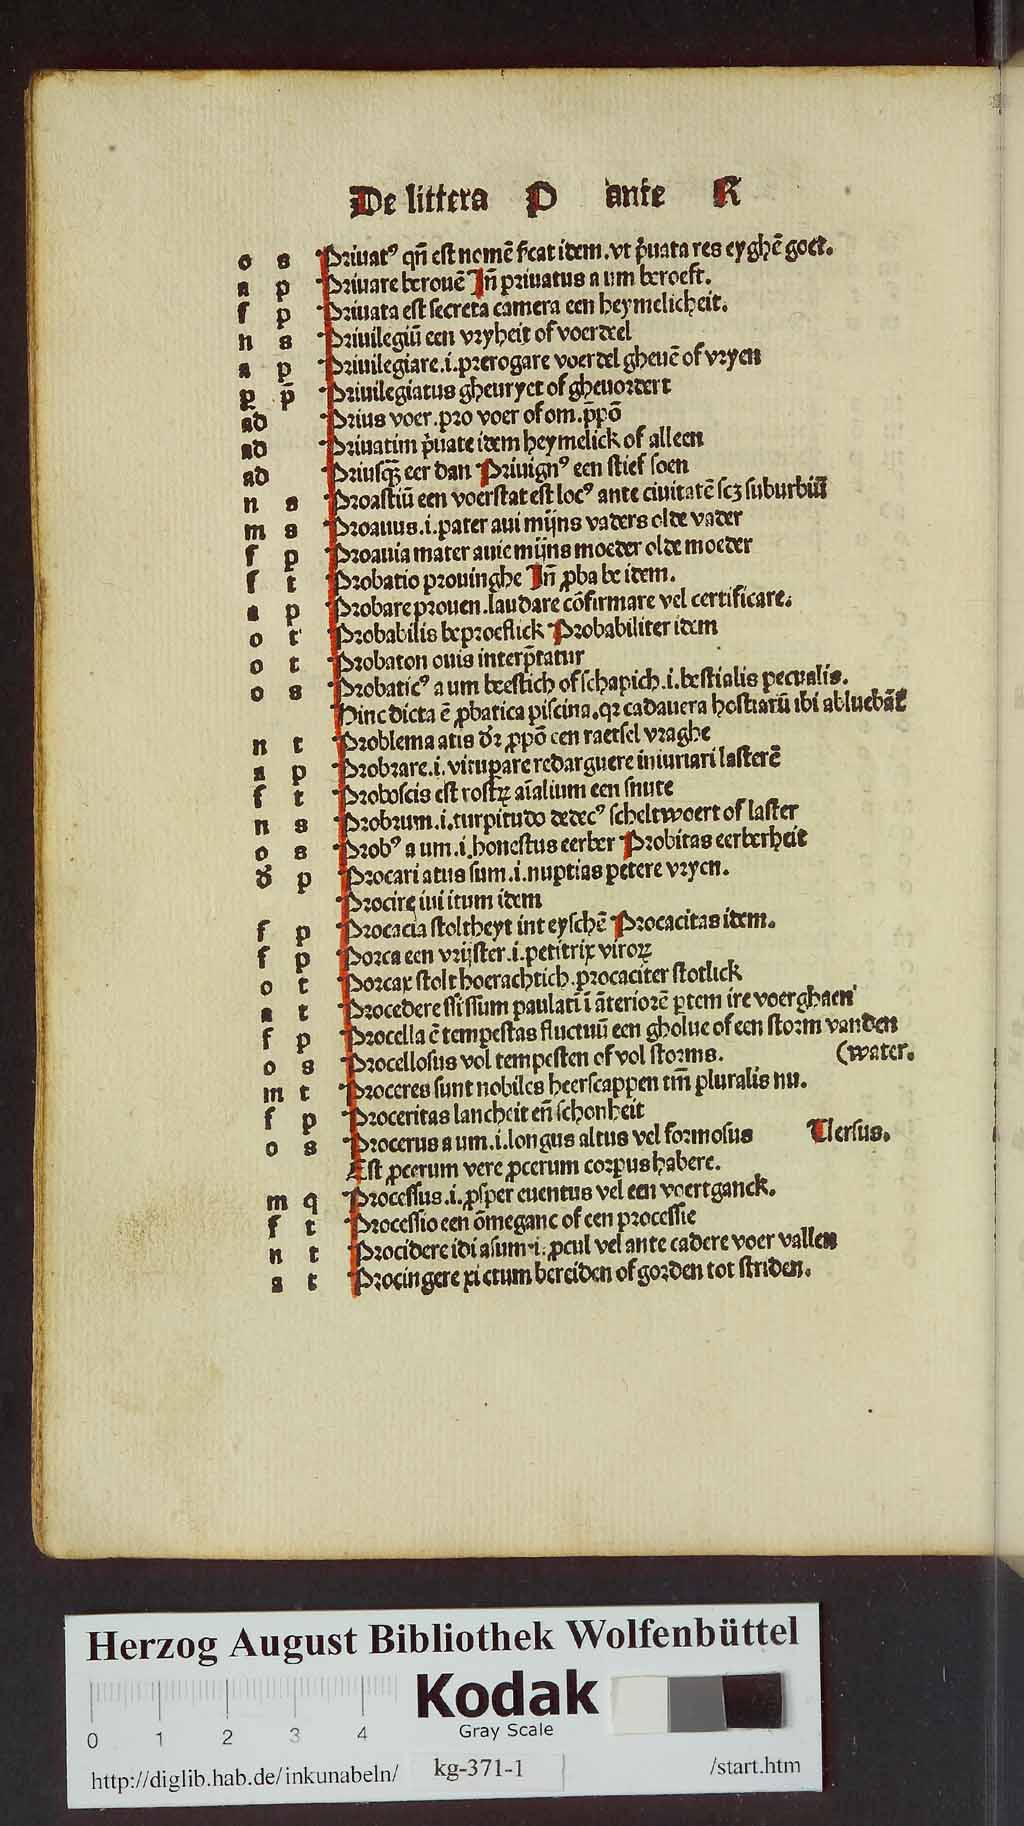 De littera P ante R
o s Priuatꝰ qn̄ est nomē ſ̄cat idem. vt p̄uata res eyghē goet.
a p Priuare berouē Jn̄ priuatus a um beroeft.
f p Priuata est secreta camera een heymelicheit.
n s Priuilegiū een vryheit of voerdeel
a p Priuilegiare .i. prerogare voerdel gheuē of vryen
p p̄ Priuilegiatus gheuryet of gheuordert
ad Prius voer. pro voer of om. p̄pō
ad Priuatim p̄uate idem heymelick of alleen
ad Priusqꝫ eer dan Priuignꝰ een stief soen
n s Proastiū een voerstat est locꝰ ante ciuitatē scꝫ suburbiū
m s Proauus .i. pater aui mijns vaders olde vader
f p Proauia mater auie mijns moeder olde moeder
f t Probatio prouinghe Jn̄ ꝓba be idem.
a p Probare prouen. laudare cōfirmare vel certificare.
o t Probabilis beproeflick Probabiliter idem
o t Probaton ouis interp̄tatur
o s Probaticꝰ a um beestich of schapich .i. bestialis pecualis.
Hinc dicta ē ꝓbatica piscina. qꝛ cadauera hostiarū ibi abluebāt̄
n t Problema atis dr̄ ꝓpō een raetsel vraghe
a p Probrare .i. vituꝑare redarguere iniuriari lasterē
f t Proboscis est rostꝝ aīalium een snute
n s Probrum .i. turpitudo dedecꝰ scheltwoert of laster
o s Probꝰ a um .i. honestus eerber Probitas eerberheit
d̄ p Procari atus sum .i. nuptias petere vryen.
Procire iui itum idem
f p Procacia stoltheyt int eyschē Procacitas idem.
f p Porca een vrijster .i. petitrix viroꝝ
o t Porcax stolt hoerachtich. procaciter stotlick
a t Procedere ssi ssum paulatī ī āteriorē ꝑtem ire voerghaen
f p Procella ē tempestas fluctuū een gholue of een storm vanden
o s Procellosus vol tempesten of vol storms. (water.
m t Proceres sunt nobiles heerscappen tm̄ pluralis nu.
f p Proceritas lancheit en̄ schonheit
o s Procerus a um .i. longus altus vel formosus Uersus.
Est ꝓcerum vere ꝓcerum corpus habere.
m q Processus .i. ꝓsper euentus vel een voertganck.
f t Processio een ōmeganc of een processie
n t Procidere idi asum .i. ꝓcul vel ante cadere voer vallen
a t Procingere xi ctum bereiden of gorden tot striden.
Herzog August Bibliothek Wolfenbüttel
Kodak
Gray Scale
0 1 2 3 4
http://diglib.hab.de/inkunabeln/ kg-371-1 /start.htm